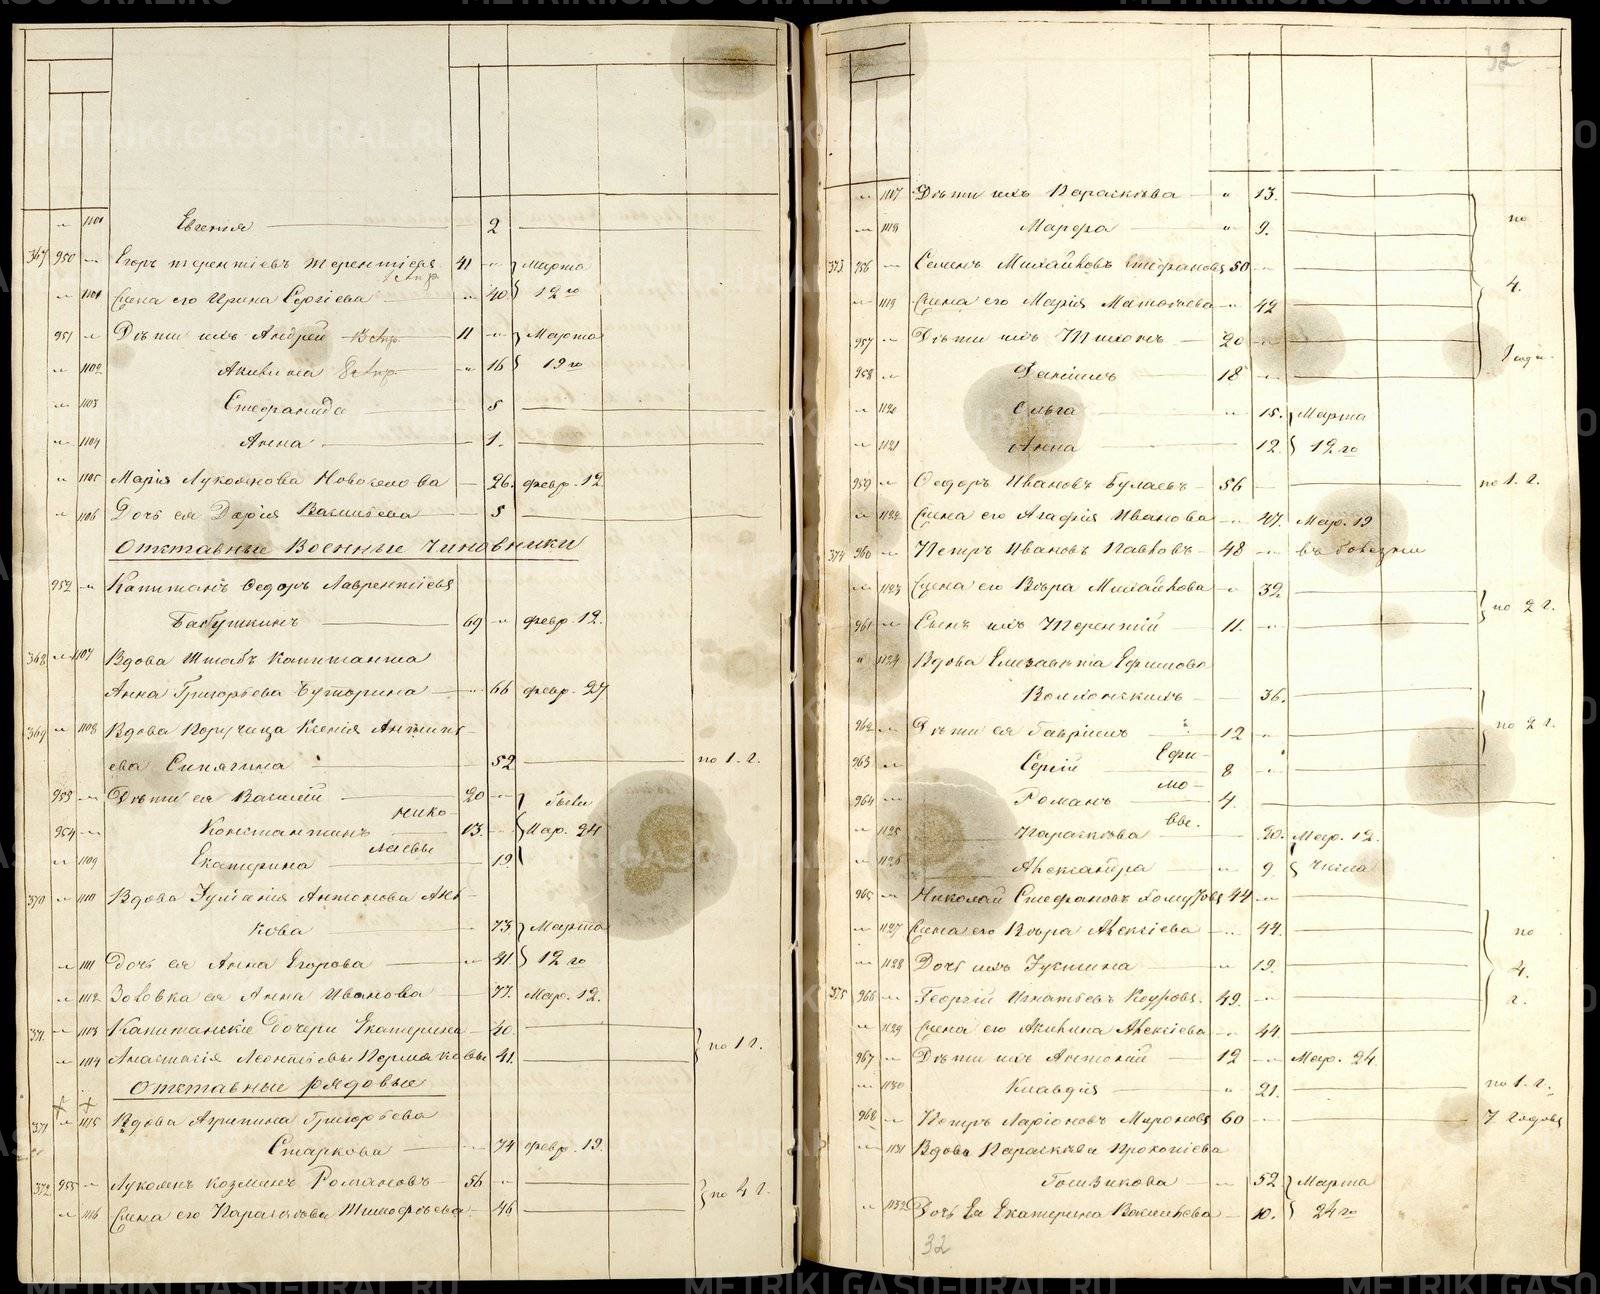 " 1100 Евгенія 2
367 950 " Егоръ Терентіевъ Терентіевъ 41 " Марта
" 1101 Жена его Ирина Сергіева " 40 12го
951 " Дѣти ихъ Андрей 11 " Марта
" 1102 Акилина " 16 12го
" 1103 Стефанида 5
" 1104 Анна 1.
" 1105 Марія Луколянова Новоселова 26. февр. 12
" 1106 Дочь ея Дарія Васильева 5
Отставные Военные Чиновники
952 " Капитанъ Ѳедоръ Лаврентіевъ
Бабушкинъ 69 " февр. 12.
368 " 1107 Вдова Штабъ Капитанша
Анна Григорьева Буторина " 66 февр. 27
369 " 1108 Вдова Поручица Ксенія Антипь
ева Синягина 52 по 1. г.
953 " Дѣти ея Василій 20 " были
Нико-
954 " Константинъ 13. " Мар. 24
лаевы
" 1109 Екатерина 19
370 " 1110 Вдова Іуліанія Антонова
кова 73 Марта
" 1111 Дочь ея Анна Егорова 41 12го
" 1112 Золовка ея Анна Иванова 77. Мар. 12.
371. " 1113 Капитанскіе дочери Екатерина 40.
" 1114 Анастасія Леонтьевы Пермяковы 41. по 1 г.
Отставные рядовые
371 " 1115 Вдова Агрипина Григорьева
Старкова 74 февр. 19.
372 955 " Лукоянъ Козминъ Романовъ 56 "
" 1116 Жена его Параскева Тимофѣева 46 по 4 г.
32
" 1117 Дѣти ихъ Параскева " 13.
" 1118 Марфа " 9. по
373 956 " Семенъ Михайловъ Стефановъ 50 "
4.
" 1119 Жена его Марія Матвѣева " 42
957 " Дѣти ихъ Тихонъ 20 "
958 " Даніилъ 18 " года.
" 1120 Ольга " 15. Марта
" 1121 Анна 12. 12го
959 " Ѳедоръ Ивановъ Булаевъ 56 по 1. г.
" 1122 Жена его Агафія Иванова " 47. Мар. 19
374 960 " Петръ Ивановъ Павловъ 48 " въ болезни
" 1123 Жена его Вѣра Михайлова " 32
961 " Сынъ ихъ Терентій 11. " по 2 г.
" 1124 Вдова Елизавета Ефимова
Волхонскихъ 36.
962 " Дѣти ея Гавріилъ 12 " по 2 г.
Ефи-
963 " Сергій 8 "
мо-
964 " Романъ 4.
вы.
" 1125 Параскева 20. Мар. 12.
" 1126 Александра " 9. числа
965 " Николай Стефановъ Хомутовъ 44 "
" 1127 Жена его Вѣра Алексіева " 44. по
" 1128 Дочь ихъ Іустина " 19. 4.
375 966 " Георгій Игнатьевъ Кодровъ. 49. " г.
" 1129 Жена его Акилина Алексіева " 44.
967 " Дѣти ихъ Антоній 12 " Мар. 24.
" 1130 Клавдія " 21. по 1. г.
968 " Петръ Ларіоновъ Мироновъ 60 " 7 годовъ
" 1131 Вдова Параскева Прокопіева
Голзикова " 52 Марта
" 1132 Дочь Ея Екатерина Васильева 10. 24го
32
METRIKI.GASO-URAL.RU